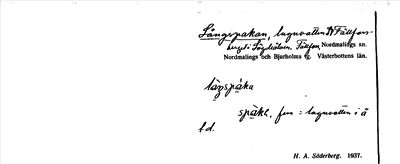 Långspakan, lugnvatten N Fällfors-
berget i Lögdeälven, Fällfors, Nordmalings sn.
Nordmalings och Bjurholms tg. Västerbottens län.
låŋspàka
spàkɐ, fem = lugnvatten i å
f. d.
H. A. Söderberg. 1937.